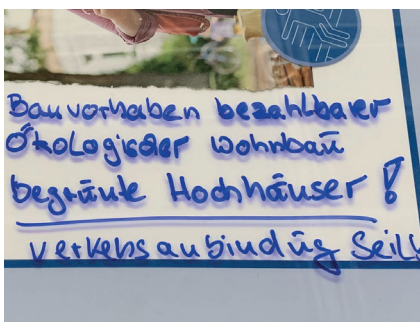 Bauvorhaben bezahlbarer
Ökologischer Wohnbau
begrünte Hochhäuser!
Verkehsanbindung Seilb